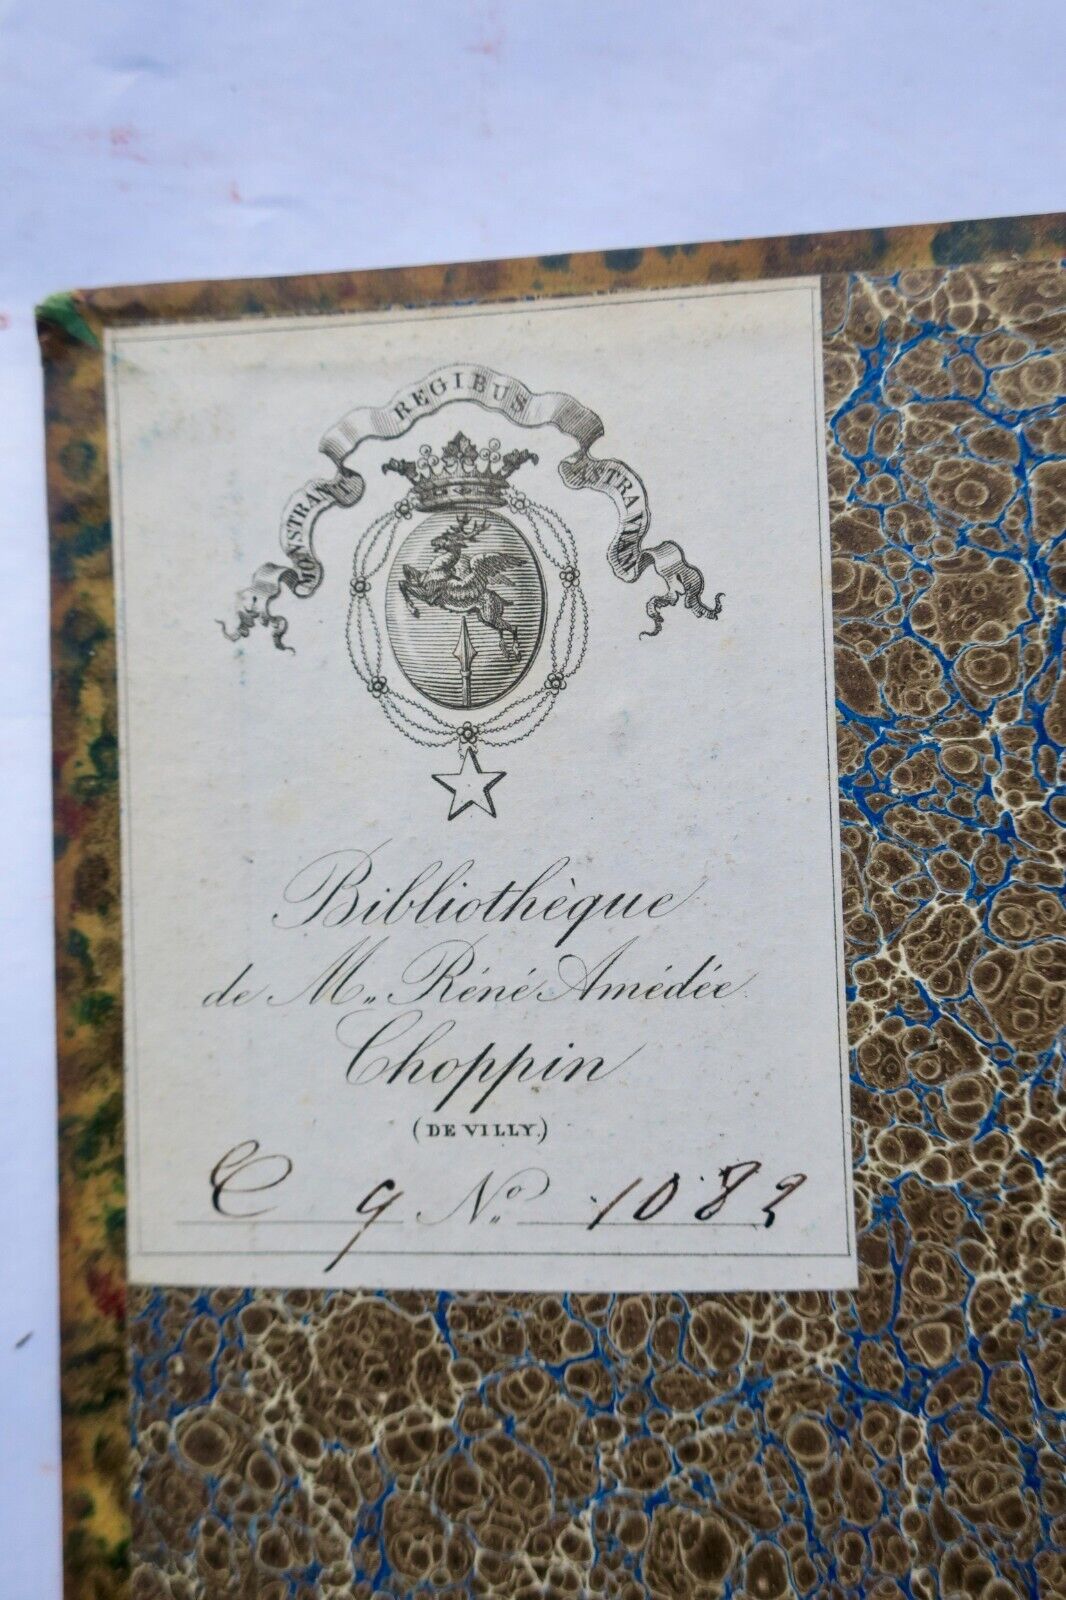 MONSTRANT REGIBUS ASTRA VIAM
Bibliothèque
de M,, Réné Amédée
Choppin
(DE VILLY.)
C 9 N,,° 1082